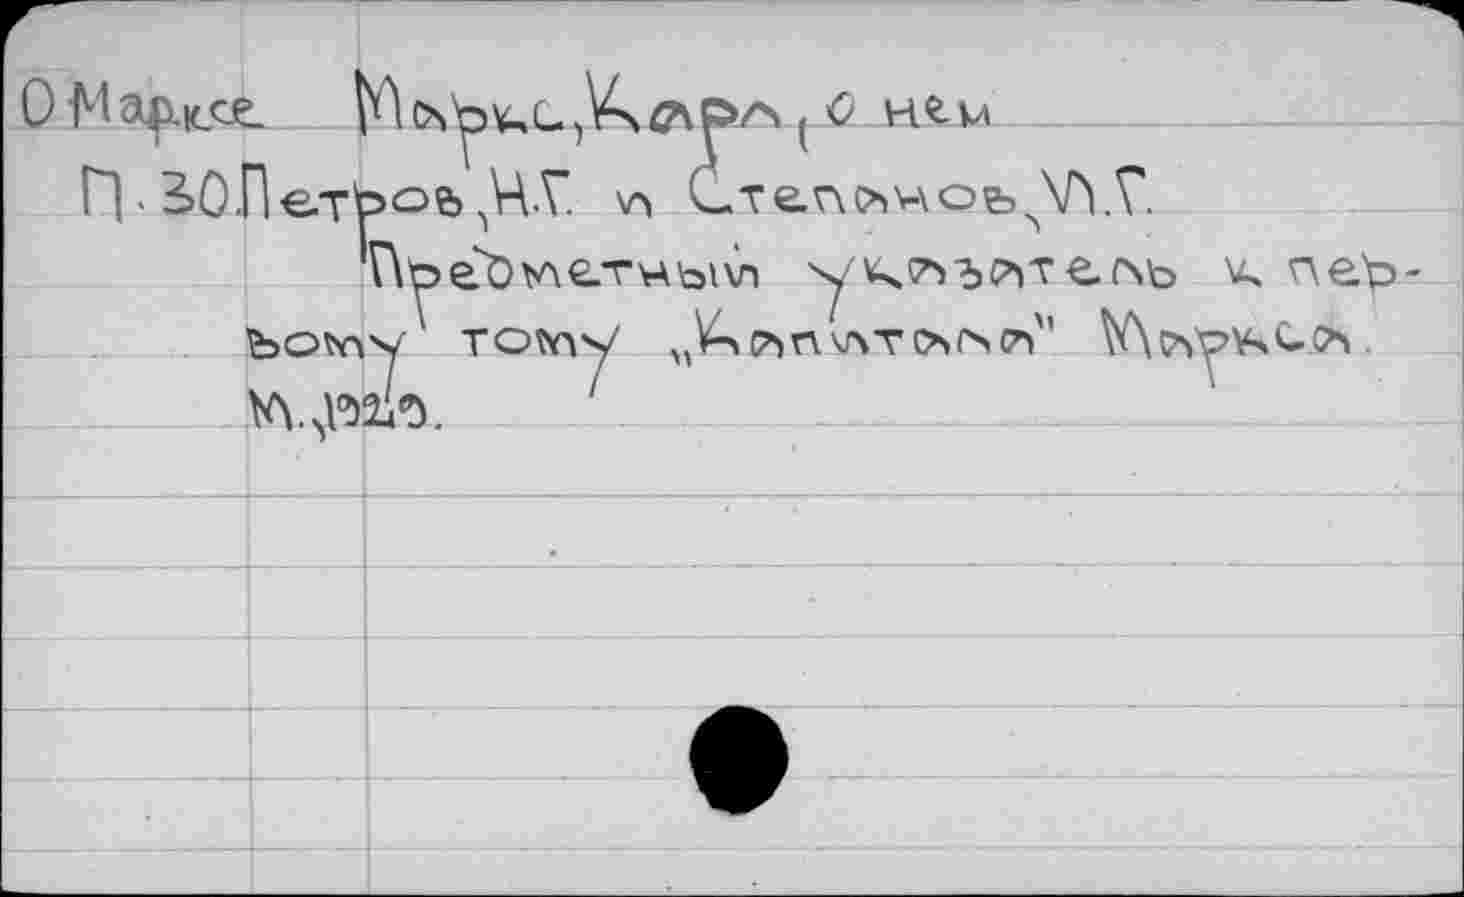 О Марксе Маркс, Карл, о нем
П.30. Петров, Н.Г. и Степанов, И.Г.
Предметный указатель к пер-
вому тому „Капитала" Маркса.
М., 1924.